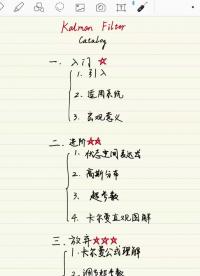 Kalman Filter
Catalog
一. 入门 ☆
1. 引入
2. 适用系统
3. 宏观意义
二. 进阶 ★★
1. 状态空间表达式
2. 高斯分布
3. 超参数
4. 卡尔曼直观图解
三. 放弃 ★★★
1. 卡尔曼公式理解
2. 调节超参数